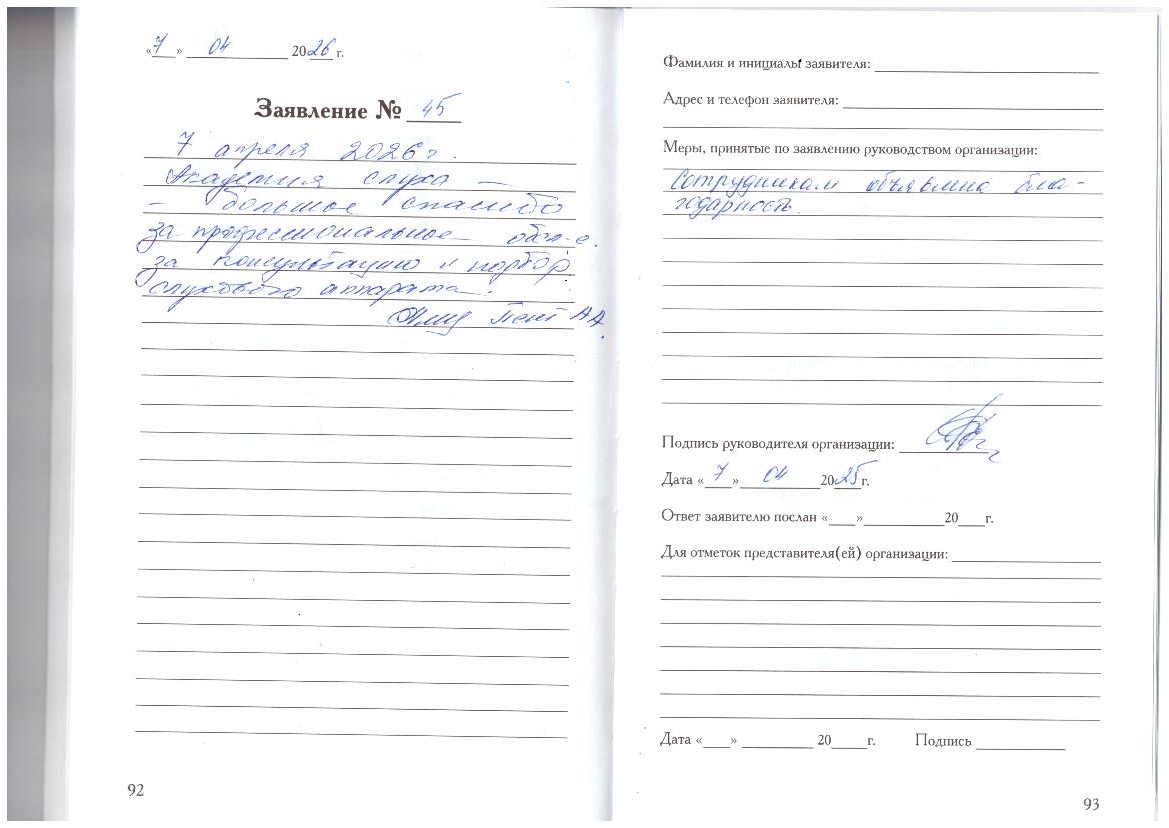 «7» 04 2026 г.
Заявление № 45
7 апреля 2026 г.
Академия слуха —
– большое спасибо
за профессиональное обсл-е.
за консультацию и подбор
слухового аппарата.
А.А.
92
Фамилия и инициалы заявителя:
Адрес и телефон заявителя:
Меры, принятые по заявлению руководством организации:
Сотрудникам объявлена бла-
годарность.
Подпись руководителя организации:
Дата «7» 04 2025 г.
Ответ заявителю послан «____»__________20____г.
Для отметок представителя(ей) организации:
Дата «____» __________ 20____г. Подпись
93